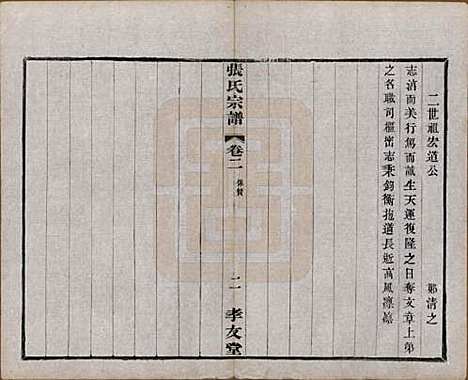 二世祖宏道公 鄭清之
志清而美行篤而誠生天運復隆之日奪文章上第
之名職司樞密志秉鈞衡抱道長逝高風凛
張氏宗譜 卷二 像贊 二 孝友堂